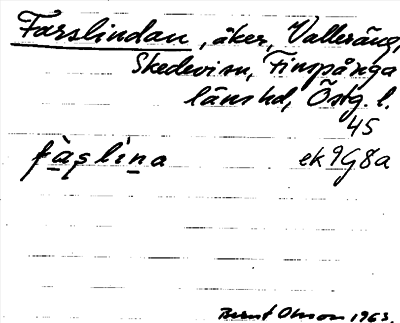 Farslindan, åker, Valleräng,
Skedevi sn, Finspånga
läns hd, Östg. l.
45
fàs̱li̱ṉa ek 9G8a
Bernt Olsson 1963.